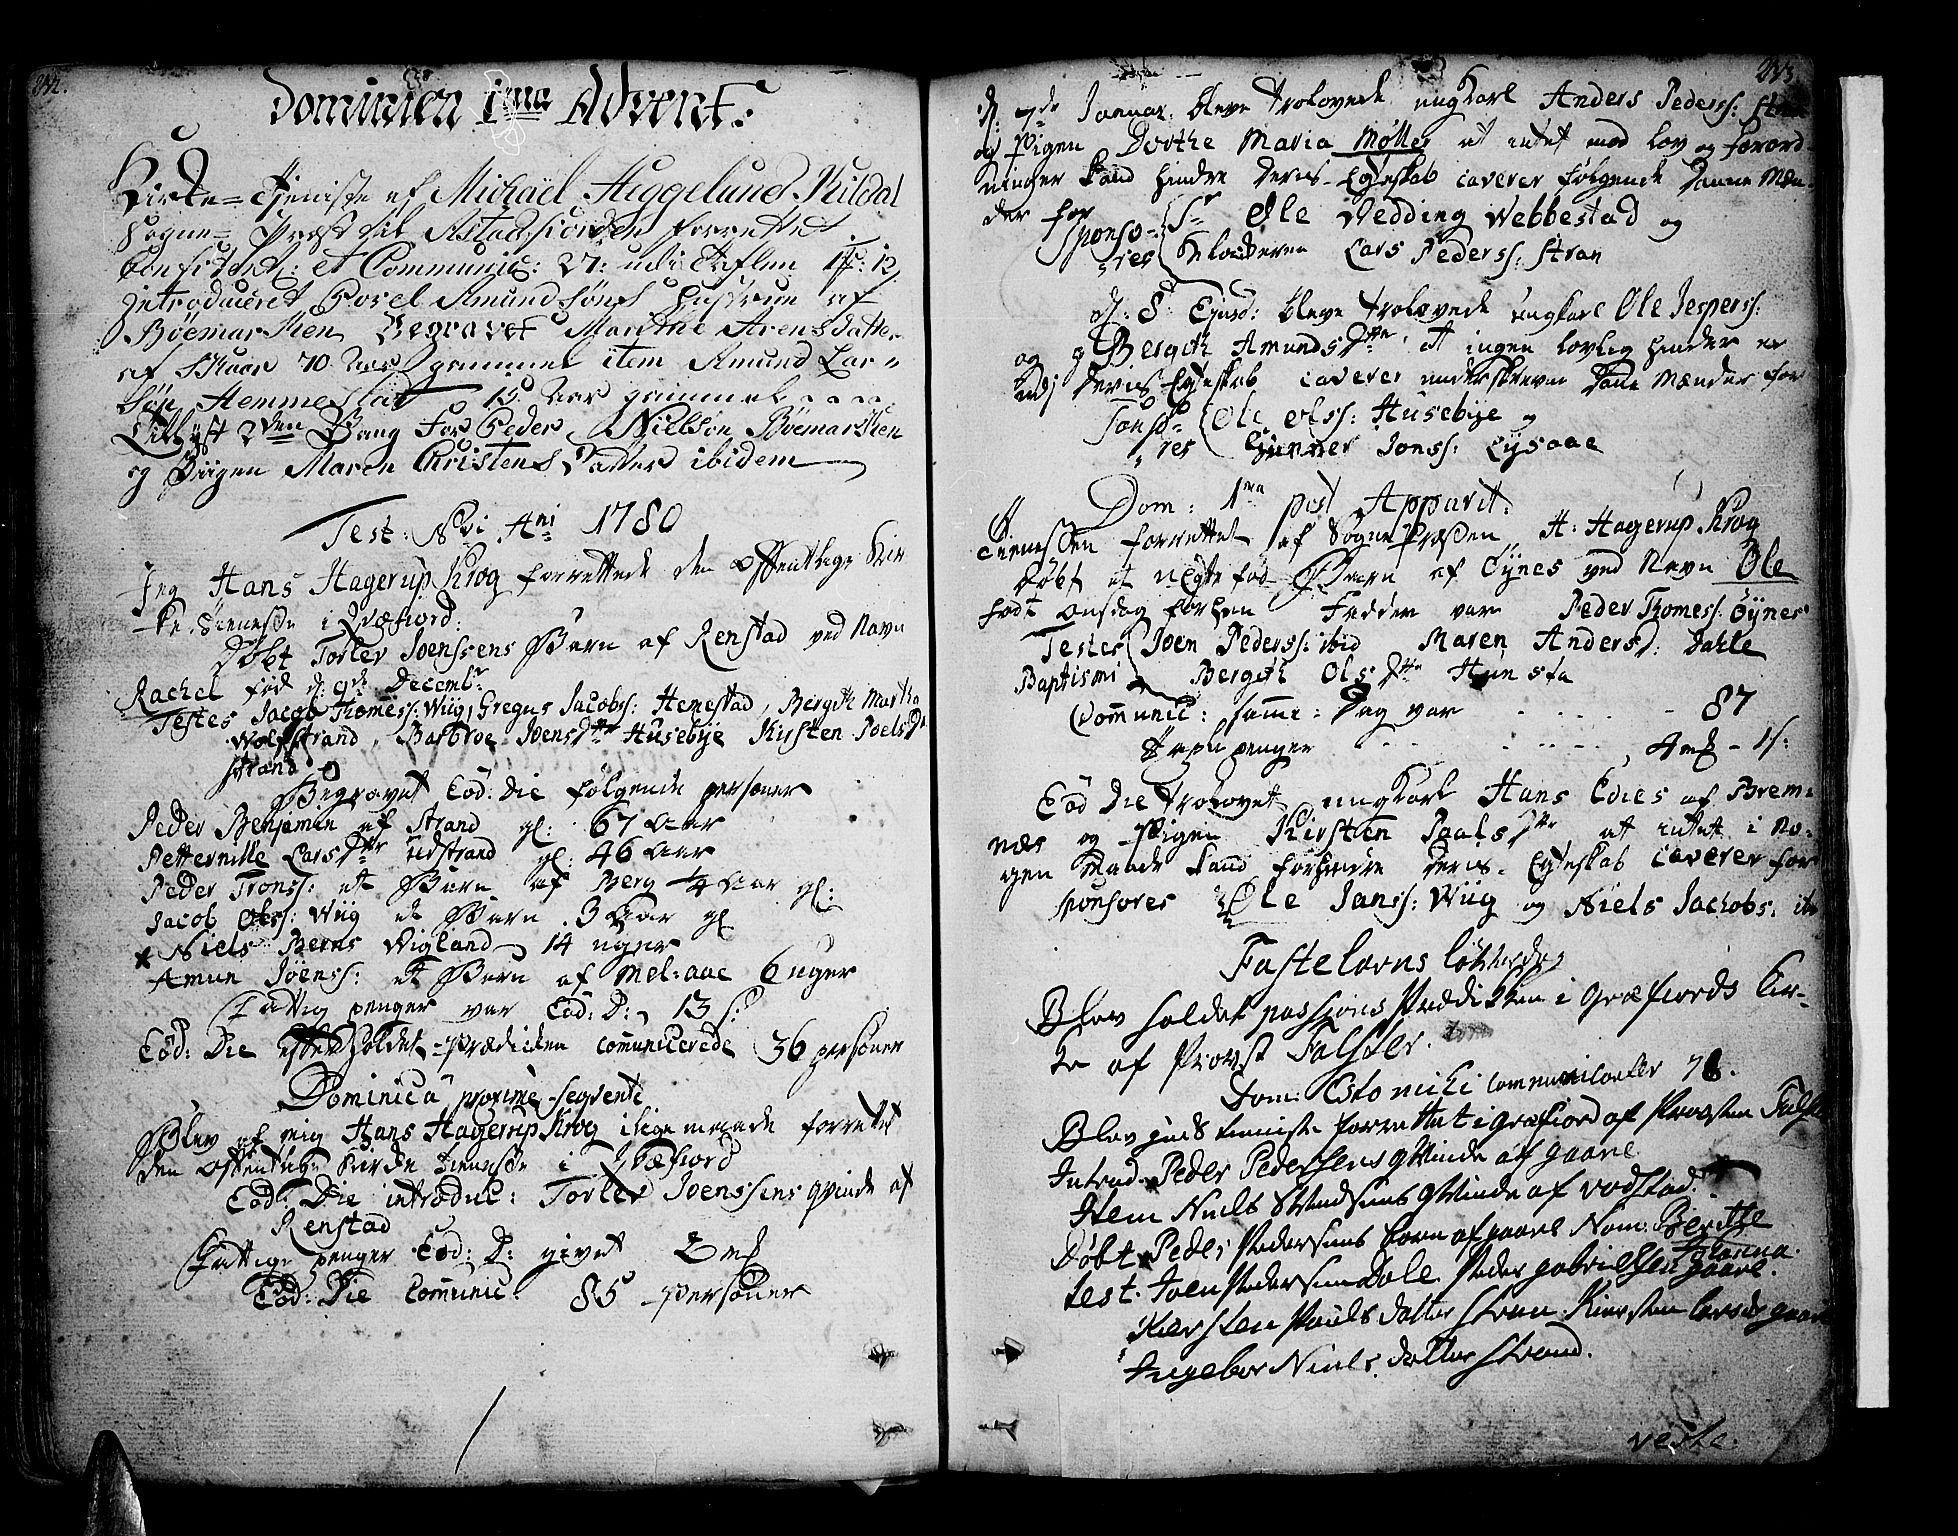 Dominica 1ma Advent:
Kirke-Tieniste af Michaël Heggelund Kildal
Sogne-Præst til Astafiorden forrettet.
Confitent: et Communic: 27: udi Taflen
Introduceret Povel Amundsöns Hustrue af
Böemarken, Begravet Marithe Arens Datter
af 70 Aar gammel item Amund Lar-
sön Hemmestad 15 Aar gammel
Tillyst 2den Gang for Peder Nielsön Böemarken
og Piigen Maren Christens Datter ibidem
Fest: Nvi Ani 1780
Jeg Hans Hagerup Krog forrettede den offentlige Kir
ke-Tieneste i Qvæfiord:
Döbt Torlev Joenssens Barn af Renstad ved Navn
Rachel fød d: 9de Decembr
Testes Jacob Thomess: Wiig, Gregus Jacobs: Hemestad, Bergith Martha
Wolf Strand, Barbroe Joens Dttr Husebye Kirsten Poels Dr
Strand
Begravet Eod: Die følgende personer
Peder Benjamin af Strand gl: 67 Aar
Petternille Lars Dttr Udstrand gl: 46 Aar
Peder Tronss: et Barn af Berg 1/4 Aar gl:
Jacob Olss: Wiig et Barn 3 Aar gl
* Niels Berns Vigland 14 uger
Amun Jöenss: et Barn af Mel-aae 6 uger
Fattig penger var Eod: D: 13 s:
Eod: Die efter Holdet Prædicken comunicerede 36 personer
Dominica proxime seqvente
Blev af mig Hans Hagerup Krog ilige maade forrettet
den offentlige Kirke tieneste i Qvæfiord
Eod: Die introduc: Torlev Joenssens qvinde af
Renstad
Fattige penger Eod: D: givet 2 mf
Eod: Die Comunic: 85 personer
d: 7de Januar: bleve trolovede ungkarl Anders Peders:
og Pigen Dorthe Maria Møller at intet mod lov og forord-
ninger kand hindre deres Egteskab caverer følgende Danne Mæn-
der for
Sponso- Sr Ole Wedding Webbestad og
res Klockeren Lars Pederss: Stran
d: 8 Ejusd: bleve trolovede ungkarl Ole Jesperss:
og p Bergith Amunds Dttr at ingen lovlig hinder er
udj deres Egteskab caverer underskrevne Dane Mænder for
Sponso- Ole Olss: Husebye og
res Gunner Jonss: Lysaae
Dom: 1ma post Apparit:
Tienesten forrettet af Sogne Præsten H: Hagerup Krog
Døbt et uEgte fød Barn af Øynes ved Navn Ole
født Onsdag forhen Fadder var Peder Thomess: Øynes
Testes Joen Pederss: ibid Maren Anders: Dahle
Baptismi Bergith Ols Dttr Hunsta
Communic: samme Dag var 87
Tavle penger 4 mf - 1 s:
Eod Die trolovet ungkarl Hans Edies af Brem-
næs og Pigen Kirsten Paals Dttr at intet i no-
gen Maade kand forhindre deres Egteskab caverer for
sponsores Ole Janss: Wiig og Niels Jachobs: ib
Fastelavns løverdag
Blev holdet passions Prædikken i Qvæfiords Kir-
ke af Provst Falster.
Dom: Esto michi communicanter 78.
Blev Guds tienniste forrettet i Qvæfiord af Provsten Falster
Introd. Peder Pedersens qvinde af gaare
Item Niels qvinde af Vodstad.
Døbt Peder Pedersens barn af gaare Nom: Berithe
Johanna.
test. Joen Pedersen Dole Peder Gabrielsen gaare.
Kiersten Pouls datter Stran. Kiersten Larsdr gaare
Ingebor Niels datter Strand.
verte.